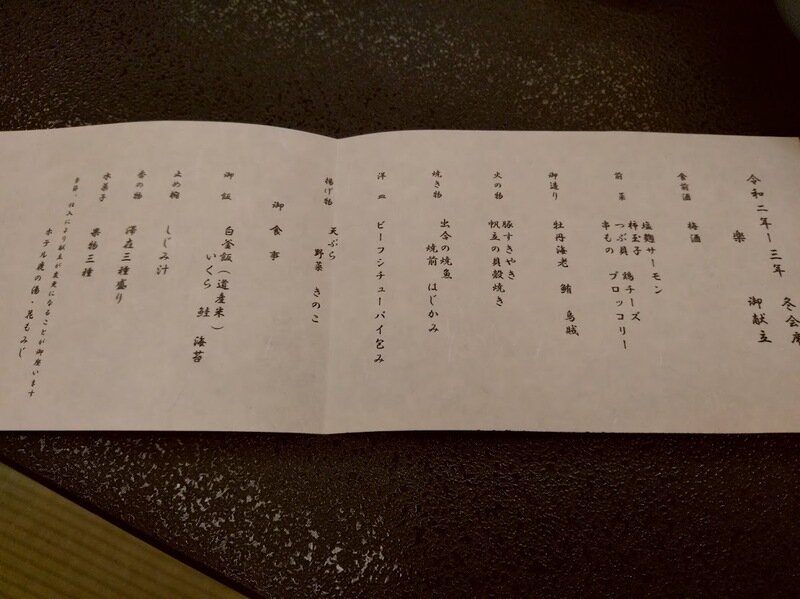 令和二年－三年　冬会席
楽　御献立
食前酒　梅酒
前菜
塩麹サーモン
梓玉子　鶏チーズ
つぶ貝　ブロッコリー
串もの
御造り　牡丹海老　鮪　烏賊
火の物
豚すきやき
帆立の貝殻焼き
焼き物
出合の焼魚
焼前はじかみ
洋皿　ビーフシチューパイ包み
揚げ物
天ぷら
野菜　きのこ
御食事
御飯
白釜飯（道産米）
いくら　鮭　海苔
止め椀　しじみ汁
香の物　滞在三種盛り
水菓子　果物三種
季節、仕入により献立が変更になることが御座います
ホテル鹿の湯・花もみじ